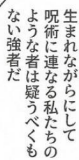 生まれながらにして
呪術に連なる私たちの
ような者は疑うべくも
ない強者だ